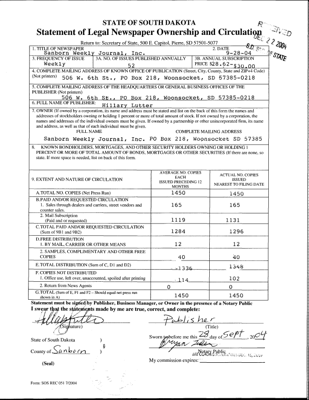 STATE OF SOUTH DAKOTA
Statement of Legal Newspaper Ownership and Circulation
Return to: Secretary of State, 500 E. Capitol, Pierre, SD 57501-5077
1. TITLE OF NEWSPAPER
Sanborn Weekly Journal, Inc.
2. DATE
9-28-04
3. FREQUENCY OF ISSUE
Weekly
3A. NO. OF ISSUES PUBLISHED ANNUALLY
52
3B. ANNUAL SUBSCRIPTION
PRICE $28.62-$30.00
4. COMPLETE MAILING ADDRESS OF KNOWN OFFICE OF PUBLICATION (Street, City, County, State and ZIP+4 Code)
(Not printers)
506 W. 6th St., PO Box 218, Woonsocket, SD 57385-0218
5. COMPLETE MAILING ADDRESS OF THE HEADQUARTERS OR GENERAL BUSINESS OFFICES OF THE
PUBLISHER (Not printer)
506 W. 6th St., PO Box 218, Woonsocket, SD 57385-0218
6. FULL NAME OF PUBLISHER:
Hillary Lutter
7. OWNER (If owned by a corporation, its name and address must be stated and list on the back of this form the names and
addresses of stockholders owning or holding 1 percent or more of total amount of stock. If not owned by a corporation, the
names and addresses of the individual owners must be given. If owned by a partnership or other unincorporated firm, its name
and address, as well as that of each individual must be given.
FULL NAME
COMPLETE MAILING ADDRESS
Sanborn Weekly Journal, Inc. PO Box 218, Woonsocket SD 57385
8. KNOWN BONDHOLDERS, MORTGAGES, AND OTHER SECURITY HOLDERS OWNING OR HOLDING 1
PERCENT OR MORE OF TOTAL AMOUNT OF BONDS, MORTGAGES OR OTHER SECURITIES (If there are none, so
state. If more space is needed, list on back of this form.
9. EXTENT AND NATURE OF CIRCULATION
AVERAGE NO. COPIES
EACH
ISSUES PRECEDING 12
MONTHS
ACTUAL NO. COPIES
ISSUED
NEAREST TO FILING DATE
A. TOTAL NO. COPIES (Net Press Run)
1450
1450
B. PAID AND/OR REQUESTED CIRCULATION
1. Sales through dealers and carriers, street vendors and
counter sales.
165
165
2. Mail Subscription
(Paid and/or requested)
1119
1131
C. TOTAL PAID AND/OR REQUESTED CIRCULATION
(Sum of 9B1 and 9B2)
1284
1296
D. FREE DISTRIBUTION
1. BY MAIL, CARRIER OR OTHER MEANS
12
12
2. SAMPLES, COMPLIMENTARY AND OTHER FREE
COPIES
40
40
E. TOTAL DISTRIBUTION (Sum of C, D1 and D2)
1336
1348
F. COPIES NOT DISTRIBUTED
1. Office use, left over, unaccounted, spoiled after printing
114
102
2. Return from News Agents
0
0
G. TOTAL (Sum of E, F1 and F2 - Should equal net press run
shown in A)
1450
1450
Statement must be signed by Publisher, Business Manager, or Owner in the presence of a Notary Public
I swear that the statements made by me are true, correct, and complete:
(Signature)
Publisher
(Title)
State of South Dakota )
County of Sanborn )
§
Sworn before me this 28 day of Sept
Notary Public
(Seal)
My commission expires:
Form: SOS REC 051 7/2004